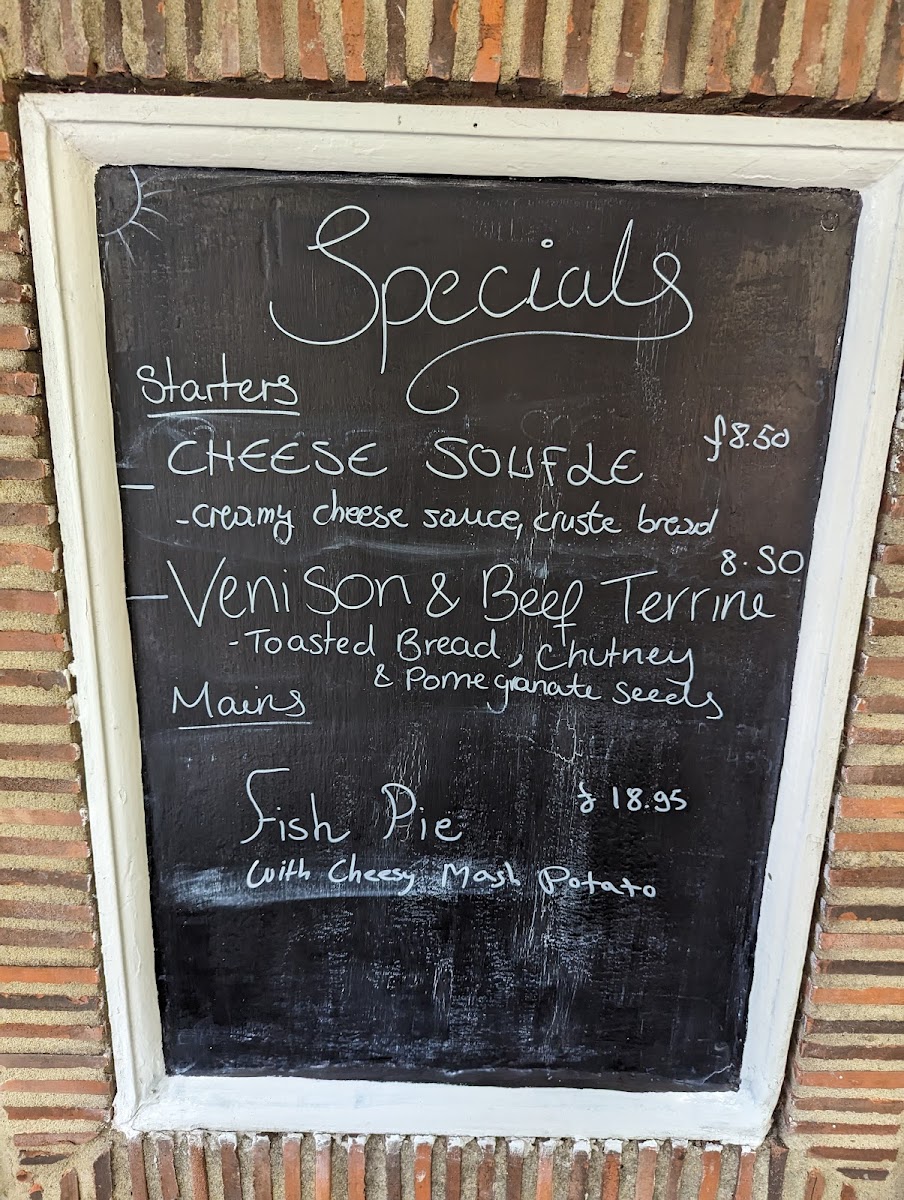 Specials
Starters
£8.50
- CHEESE SOUFLE
- creamy cheese sauce, cruste bread
8.50
- Venison & Beef Terrine
- Toasted Bread, Chutney
& Pomegranate seeds
Mains
Fish Pie £18.95
With Cheesy Mash Potato